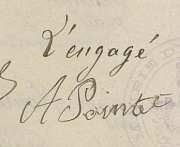 L'engagé
A Pointe